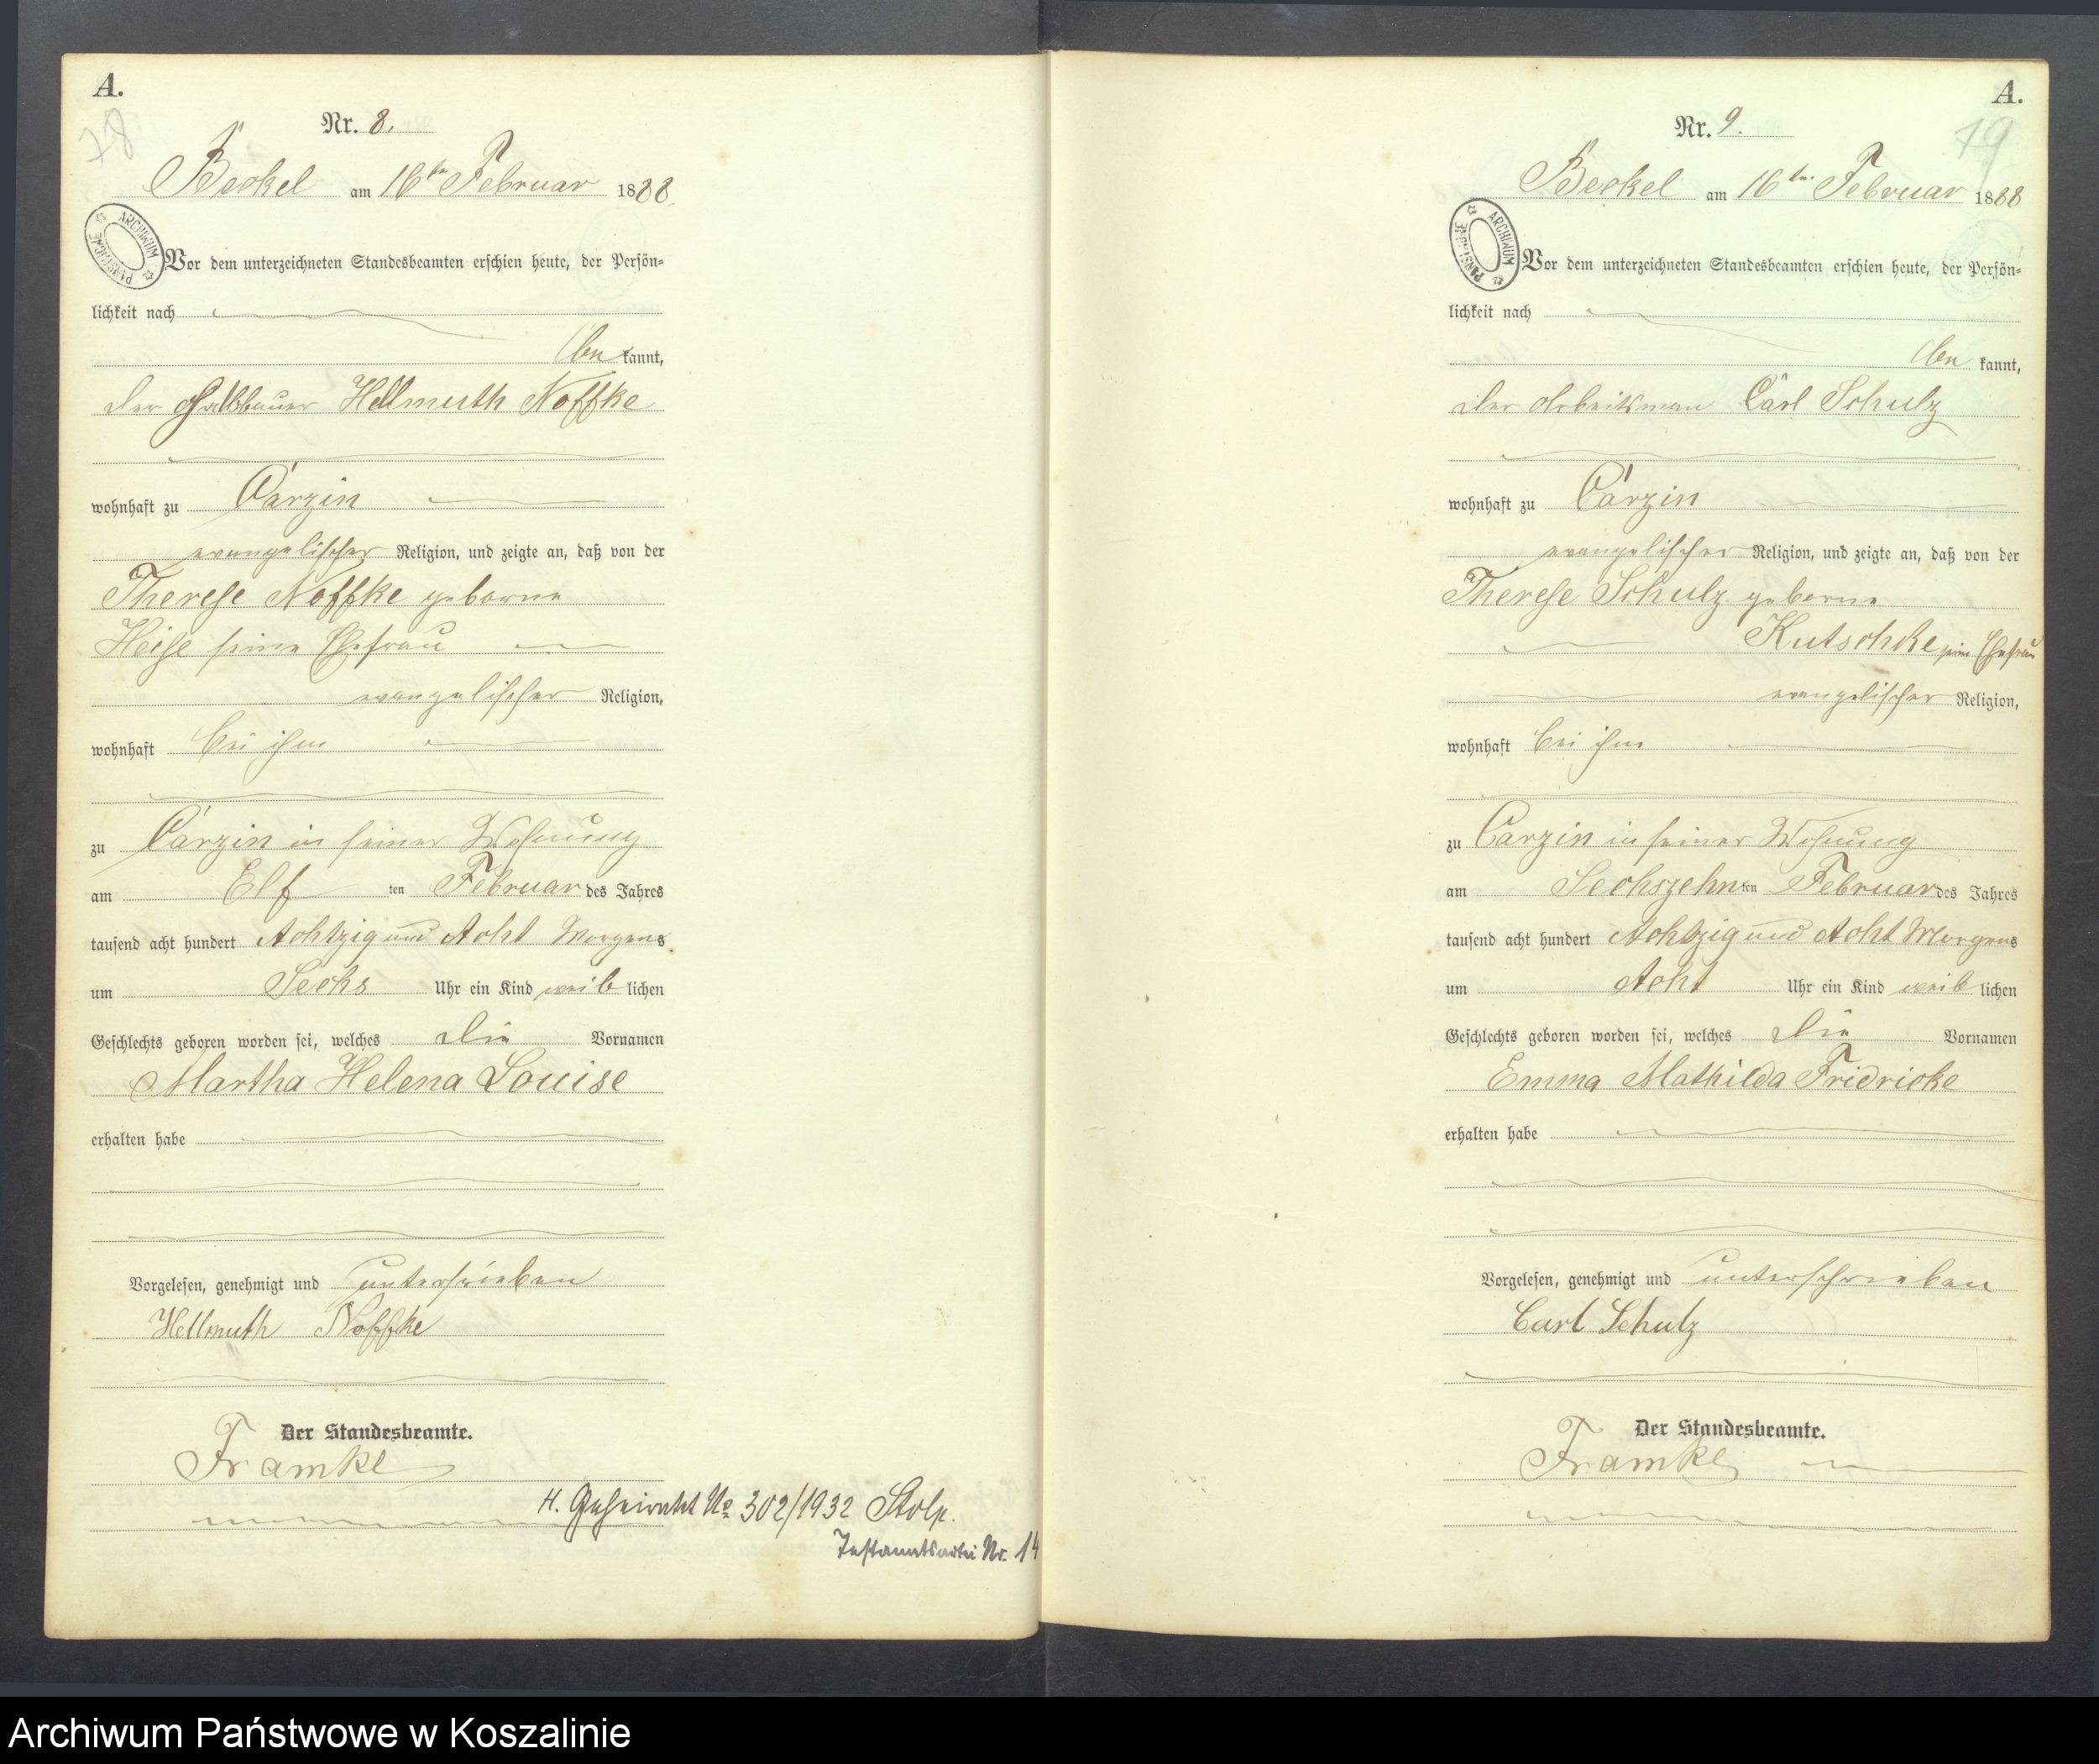 A.
Nr. 8.
Beckel am 16ten Februar 1888.
ARCHIWUM PAŃSTWOWE
Vor dem unterzeichneten Standesbeamten erschien heute, der Persön-
lichkeit nach
be kannt,
der Halbbauer Hellmuth Noffke
wohnhaft zu Carzin
evangelischer Religion, und zeigte an, daß von der
Therese Noffke geborne
Heise seine Ehefrau
evangelischer Religion,
wohnhaft bei ihm
zu Carzin in seiner Wohnung
am Elf ten Februar des Jahres
tausend acht hundert Achtzig und Acht Morgens
um Sechs Uhr ein Kind weib lichen
Geschlechts geboren worden sei, welches die Vornamen
Martha Helena Louise
erhalten habe
Vorgelesen, genehmigt und unterschrieben
Hellmuth Noffke
Der Standesbeamte.
Framke
H. Geheiratet No 302/1932 Stolp.
Nr. 14
A.
19
Nr. 9.
Beckel am 16ten Februar 1888
ARCHIWUM PAŃSTWOWE
Vor dem unterzeichneten Standesbeamten erschien heute, der Persön-
lichkeit nach
be kannt,
der Arbeitsman Carl Schulz
wohnhaft zu Carzin
evangelischer Religion, und zeigte an, daß von der
Therese Schulz geborne
Kutschke seine Ehefrau
evangelischer Religion,
wohnhaft bei ihm
zu Carzin in seiner Wohnung
am Sechszehn ten Februar des Jahres
tausend acht hundert Achtzig und Acht Morgens
um Acht Uhr ein Kind weib lichen
Geschlechts geboren worden sei, welches die Vornamen
Emma Mathilda Fridricke
erhalten habe
Vorgelesen, genehmigt und unterschrieben
Carl Schulz
Der Standesbeamte.
Framke
Archiwum Państwowe w Koszalinie